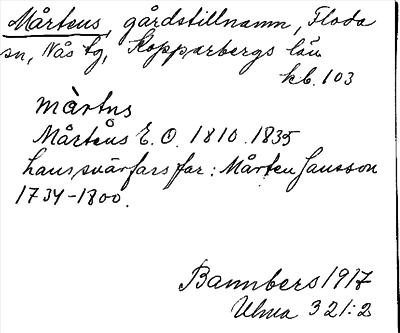 Mårtens, gårdstillnamn, Floda
sn, Nås tg, Kopparbergs län
kb. 103
màrtns
Mårtens E. O. 1810. 1835
hans svärfars far: Mårten Jansson
1734-1800.
Bannbers 1917
Ulma 321:2